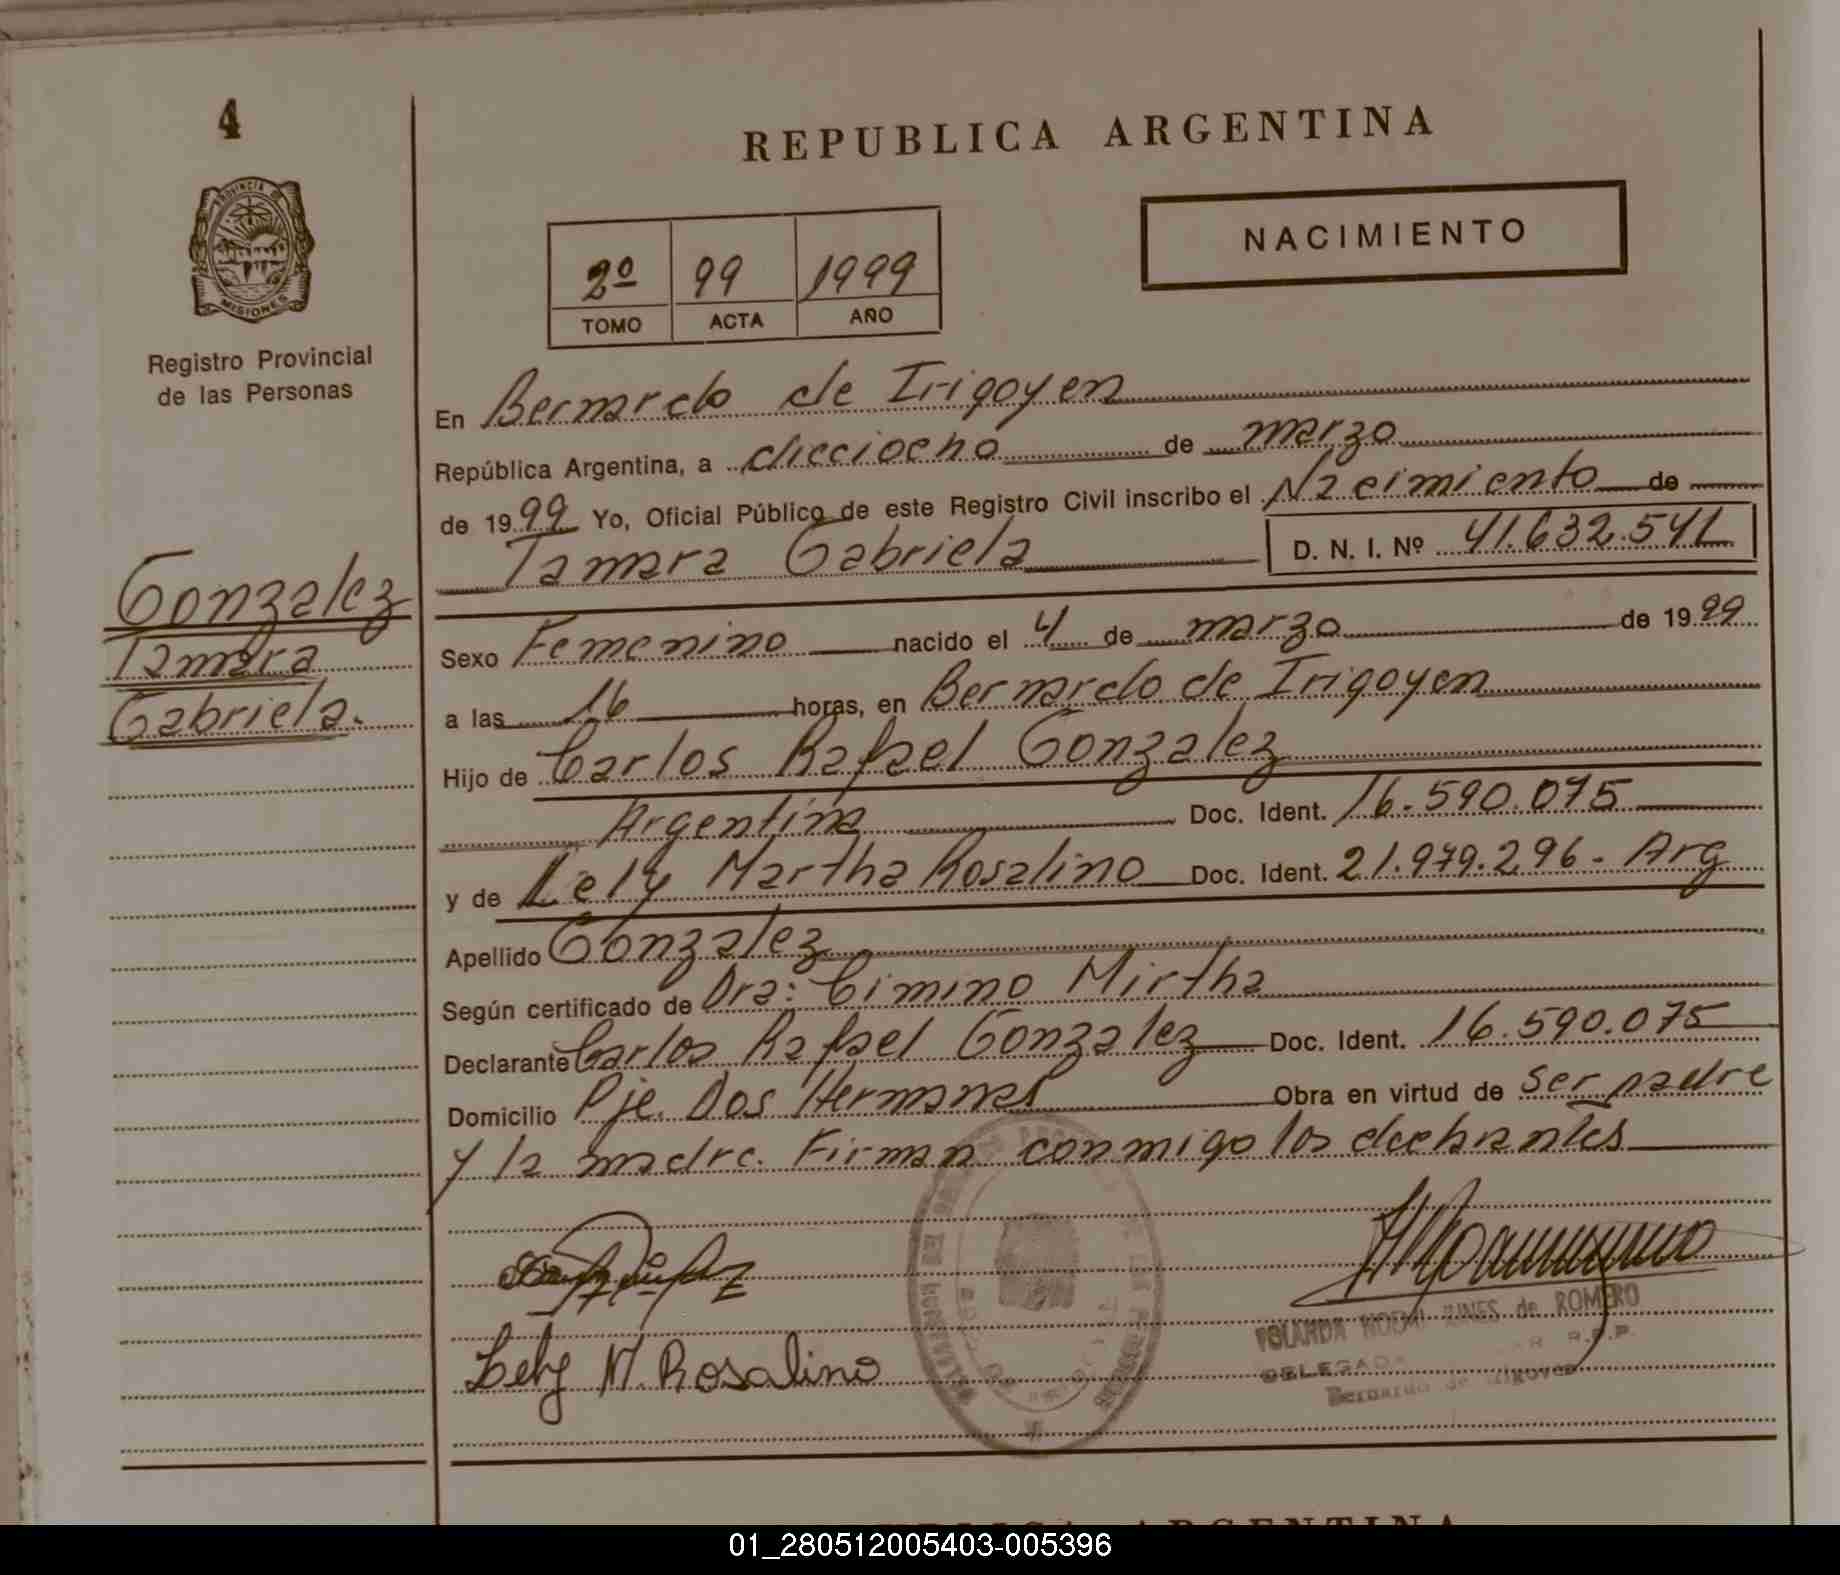 4
REPUBLICA ARGENTINA
PROVINCIA DE
MISIONES
NACIMIENTO
2º 99 1999
TOMO ACTA AÑO
Registro Provincial
de las Personas
En Bernardo de Irigoyen
República Argentina, a dieciocho de marzo
de 1999 Yo, Oficial Público de este Registro Civil inscribo el Nacimiento de
Tamara Gabriela D. N. I. Nº 41.632.541
Gonzalez
Tamara
Gabriela.
Sexo Femenino nacido el 4 de marzo de 1999
a las 16 horas, en Bernardo de Irigoyen
Hijo de Carlos Rafael Gonzalez
Argentina Doc. Ident. 16.590.075
y de Lely Martha Rosalino Doc. Ident. 21.979.296- Arg
Apellido Gonzalez
Según certificado de Dra: Cimino Mirtha
Declarante Carlos Rafael Gonzalez Doc. Ident. 16.590.075
Domicilio Pje. Dos Hermanas Obra en virtud de ser padre
y la madre. Firman conmigo los declarantes
Lely M. Rosalino
YOLANDA NOEMI de ROMERO
DELEGADA R.P.P.
Bernardo de Irigoyen
REPUBLICA ARGENTINA
01_280512005403-005396